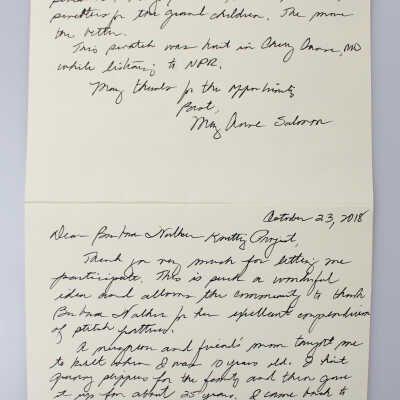 for the grand children. The more
the better.
This swatch was knit in Chevy Chase, MD
while listening to NPR.
Many thanks for the opportunity
Best,
Mary Anne Salmon
October 23, 2018
Dear Barbara Walker Knitting Project,
Thank you very much for letting me
participate. This is such a wonderful
idea and allows the community to thank
Barbara Walker for her excellent compendium
of stitch patterns.
A neighbor and friend's mom taught me
to knit when I was 10 years old. I knit
slippers for the family and then gave
it up for about 25 years. I came back to